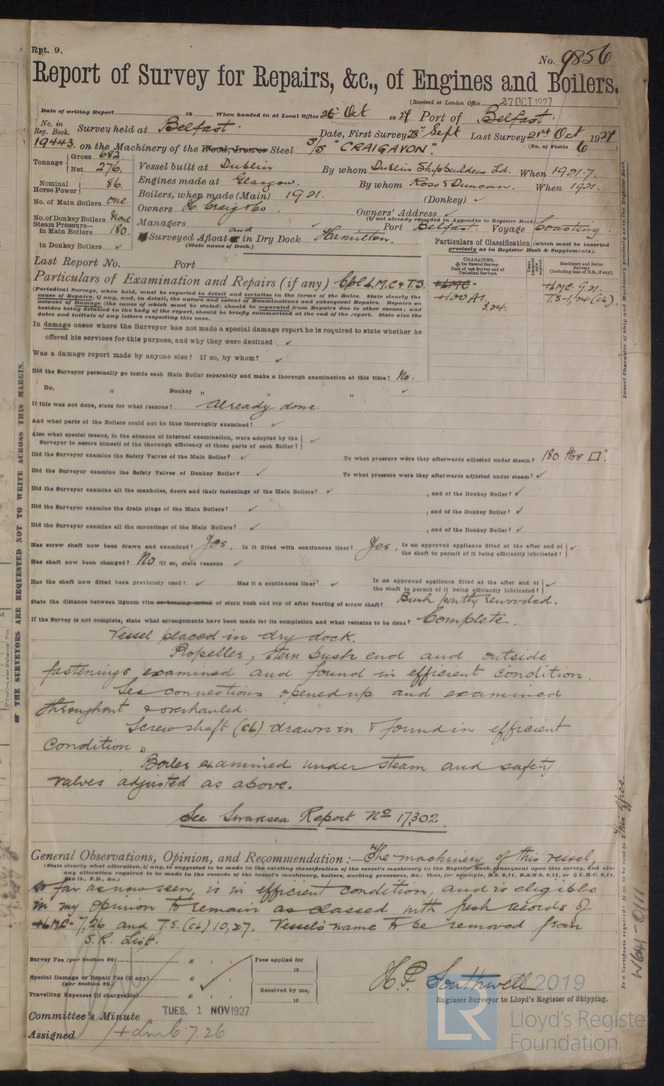 Rpt. 9.
No. 9856
Report of Survey for Repairs, &c., of Engines and Boilers.
(Received at London Office 27 OCT 1927
Date of writing Report 19 When handed in at Local Office 26 Oct 1927 Port of Belfast.
No. in Reg. Book. Survey held at Belfast. Date, First Survey 28 Sept Last Survey 21st Oct 1927
19443. on the Machinery of the Wood, Iron or Steel S/S "CRAIGAVON". (No. of Visits 6
Tonnage Gross 682. Net 276.
Vessel built at Dublin By whom Dublin Shipbuilders Ld. When 1921.7.
Nominal Horse Power 86.
Engines made at Glasgow. By whom Ross & Duncan. When 1921.
No. of Main Boilers One. Boilers, when made (Main) 1921. (Donkey) ✓
No. of Donkey Boilers None
Owners H. Craig & Co Owners' Address
(if not already recorded in Appendix to Register Book)
Steam Pressure in Main Boilers 180.
Managers Port Belfast. Voyage Coasting.
in Donkey Boilers ✓
Surveyed Afloat and in Dry Dock Hamilton.
(State name of Dock.)
Particulars of Classification (which must be inserted precisely as in Register Book & Supplements).
Last Report No. Port
Particulars of Examination and Repairs (if any) Cpl L.M.C. & T.S.
+LMC
+100A1. 3.24.
+LMC 9.21.
T.S-1,24 (cl).
In damage cases where the Surveyor has not made a special damage report he is required to state whether he
offered his services for this purpose, and why they were declined ✓
Was a damage report made by anyone else? If so, by whom? ✓
Did the Surveyor personally go inside each Main Boiler separately and make a thorough examination at this time? No.
Do. " Donkey " " " ✓
If this was not done, state for what reasons? Already done
And what parts of the Boilers could not be thus thoroughly examined? ✓
Also what special means, in the absence of internal examination, were adopted by the
Surveyor to assure himself of the thorough efficiency of those parts of each Boiler? ✓
Did the Surveyor examine the Safety Valves of the Main Boiler? ✓ To what pressure were they afterwards adjusted under steam? 180 lbs □".
Did the Surveyor examine the Safety Valves of Donkey Boiler? ✓ To what pressure were they afterwards adjusted under steam? ✓
Did the Surveyor examine all the manholes, doors and their fastenings of the Main Boilers? ✓ , and of the Donkey Boiler? ✓
Did the Surveyor examine the drain plugs of the Main Boilers? ✓ , and of the Donkey Boiler? ✓
Did the Surveyor examine all the mountings of the Main Boilers? ✓ , and of the Donkey Boiler? ✓
Has screw shaft now been drawn and examined? Yes. Is it fitted with continuous liner? Yes. Is an approved appliance fitted at the after end of
the shaft to permit of it being efficiently lubricated? ✓
Has shaft now been changed? No If so, state reasons ✓
Has the shaft now fitted been previously used? ✓ Has it a continuous liner? ✓ Is an approved appliance fitted at the after end of
the shaft to permit of it being efficiently lubricated? ✓
State the distance between lignum vitæ of stern bush and top of after bearing of screw shaft? Bush partly rewooded.
If the Survey is not complete, state what arrangements have been made for its completion and what remains to be done? Complete.
Vessel placed in dry dock.
Propeller, stern bush end and outside
fastenings examined and found in efficient condition.
Sea connections opened up and examined
throughout & overhauled.
Screw shaft (cl) drawn in & found in efficient
condition.
Boiler examined under steam and safety
valves adjusted as above.
See Swansea Report No 17302.
General Observations, Opinion, and Recommendation:— The machinery of this vessel,
so far as now seen, is in efficient condition, and is eligible
in my opinion to remain as classed with fresh records of
+LMC- 7,26 and T.S.(cl) 10,27. Vessel's name to be removed from
S.R. List.
Survey Fee (per Section 29)
Special Damage or Repair Fee (if any)
(per Section 29.)
Travelling Expenses (if chargeable)
Fees applied for
19
Received by me,
19
H.P. Southwell
Engineer Surveyor to Lloyd's Register of Shipping.
Committee's Minute TUES. 1 NOV 1927
Assigned + LMC 7.26
THE SURVEYORS ARE REQUESTED NOT TO WRITE ACROSS THIS MARGIN.
W641-0111
2019
LR
Lloyd's Register
Foundation